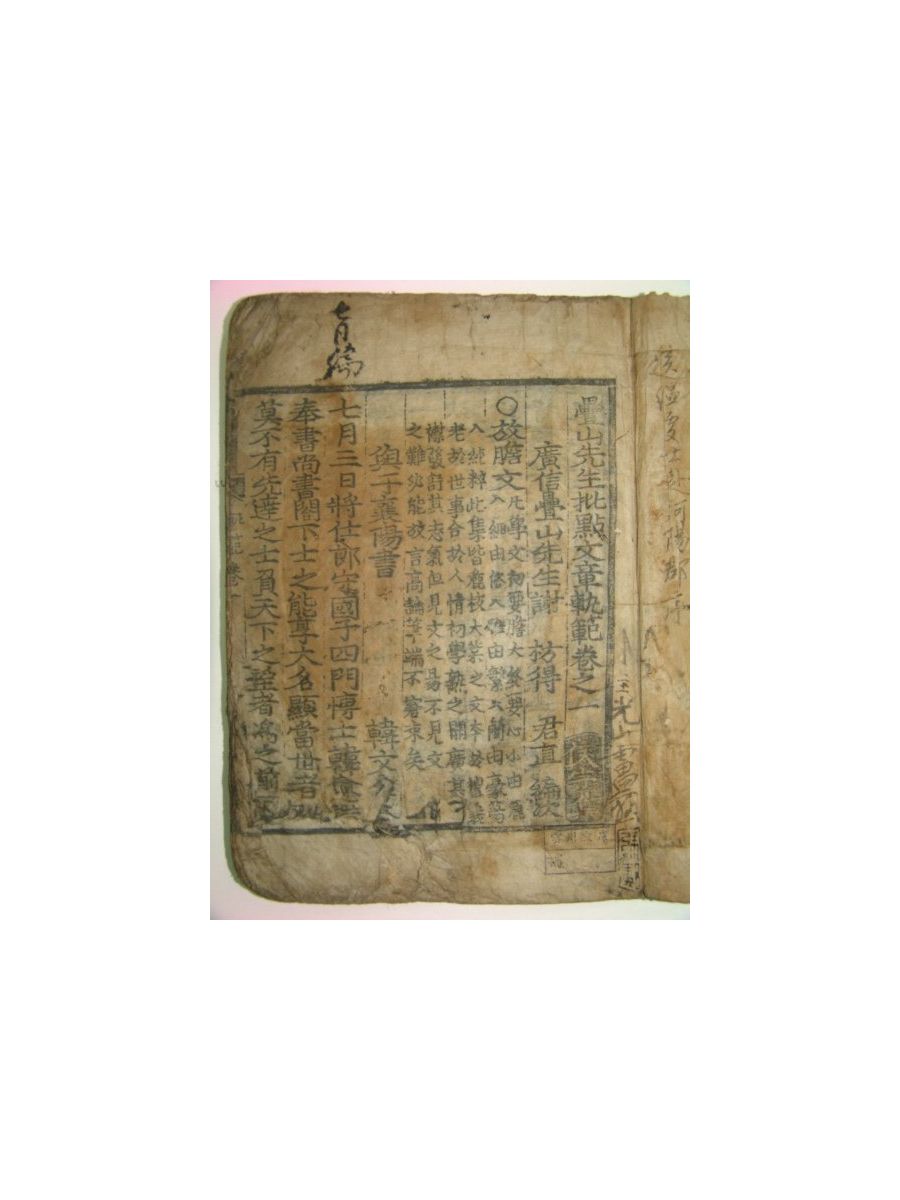 疊山先生批點文章軌範卷之一
廣信疊山先生謝 枋得 君直 編次
○放膽文
凡學文初要膽大終要心小由麁
入細由俗入雅由繁入簡由豪蕩
入純粹此集皆麁枝大葉之文本於禮義
老於世事合於人情初學熟之開廣其
襟發舒其志氣但見文之易不見文
之難必能放言高論筆端不窘束矣
與于襄陽書 韓文公
七月三日將仕郎守國子四門博士韓愈謹
奉書尚書閤下士之能享大名顯當世者
莫不有先達之士負天下之望者爲之前
七月